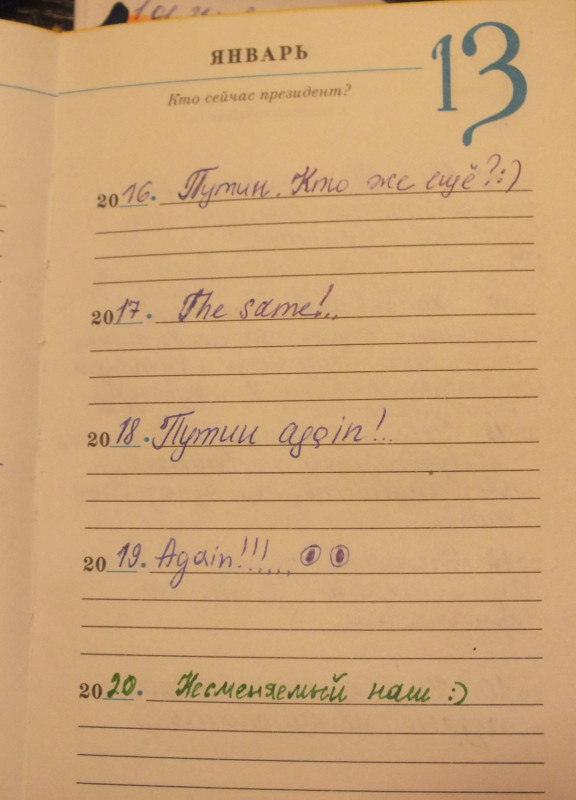 ЯНВАРЬ
13
Кто сейчас президент?
2016. Путин. Кто же ещё? :)
2017. The same!..
2018. Путин again!..
2019. Again!!!.....
2020. Несменяемый наш :)